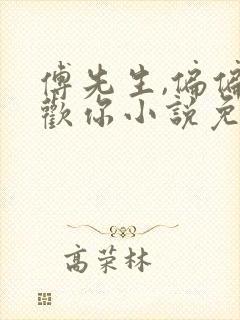 傅先生,偏偏
歡你小說免
高荣林